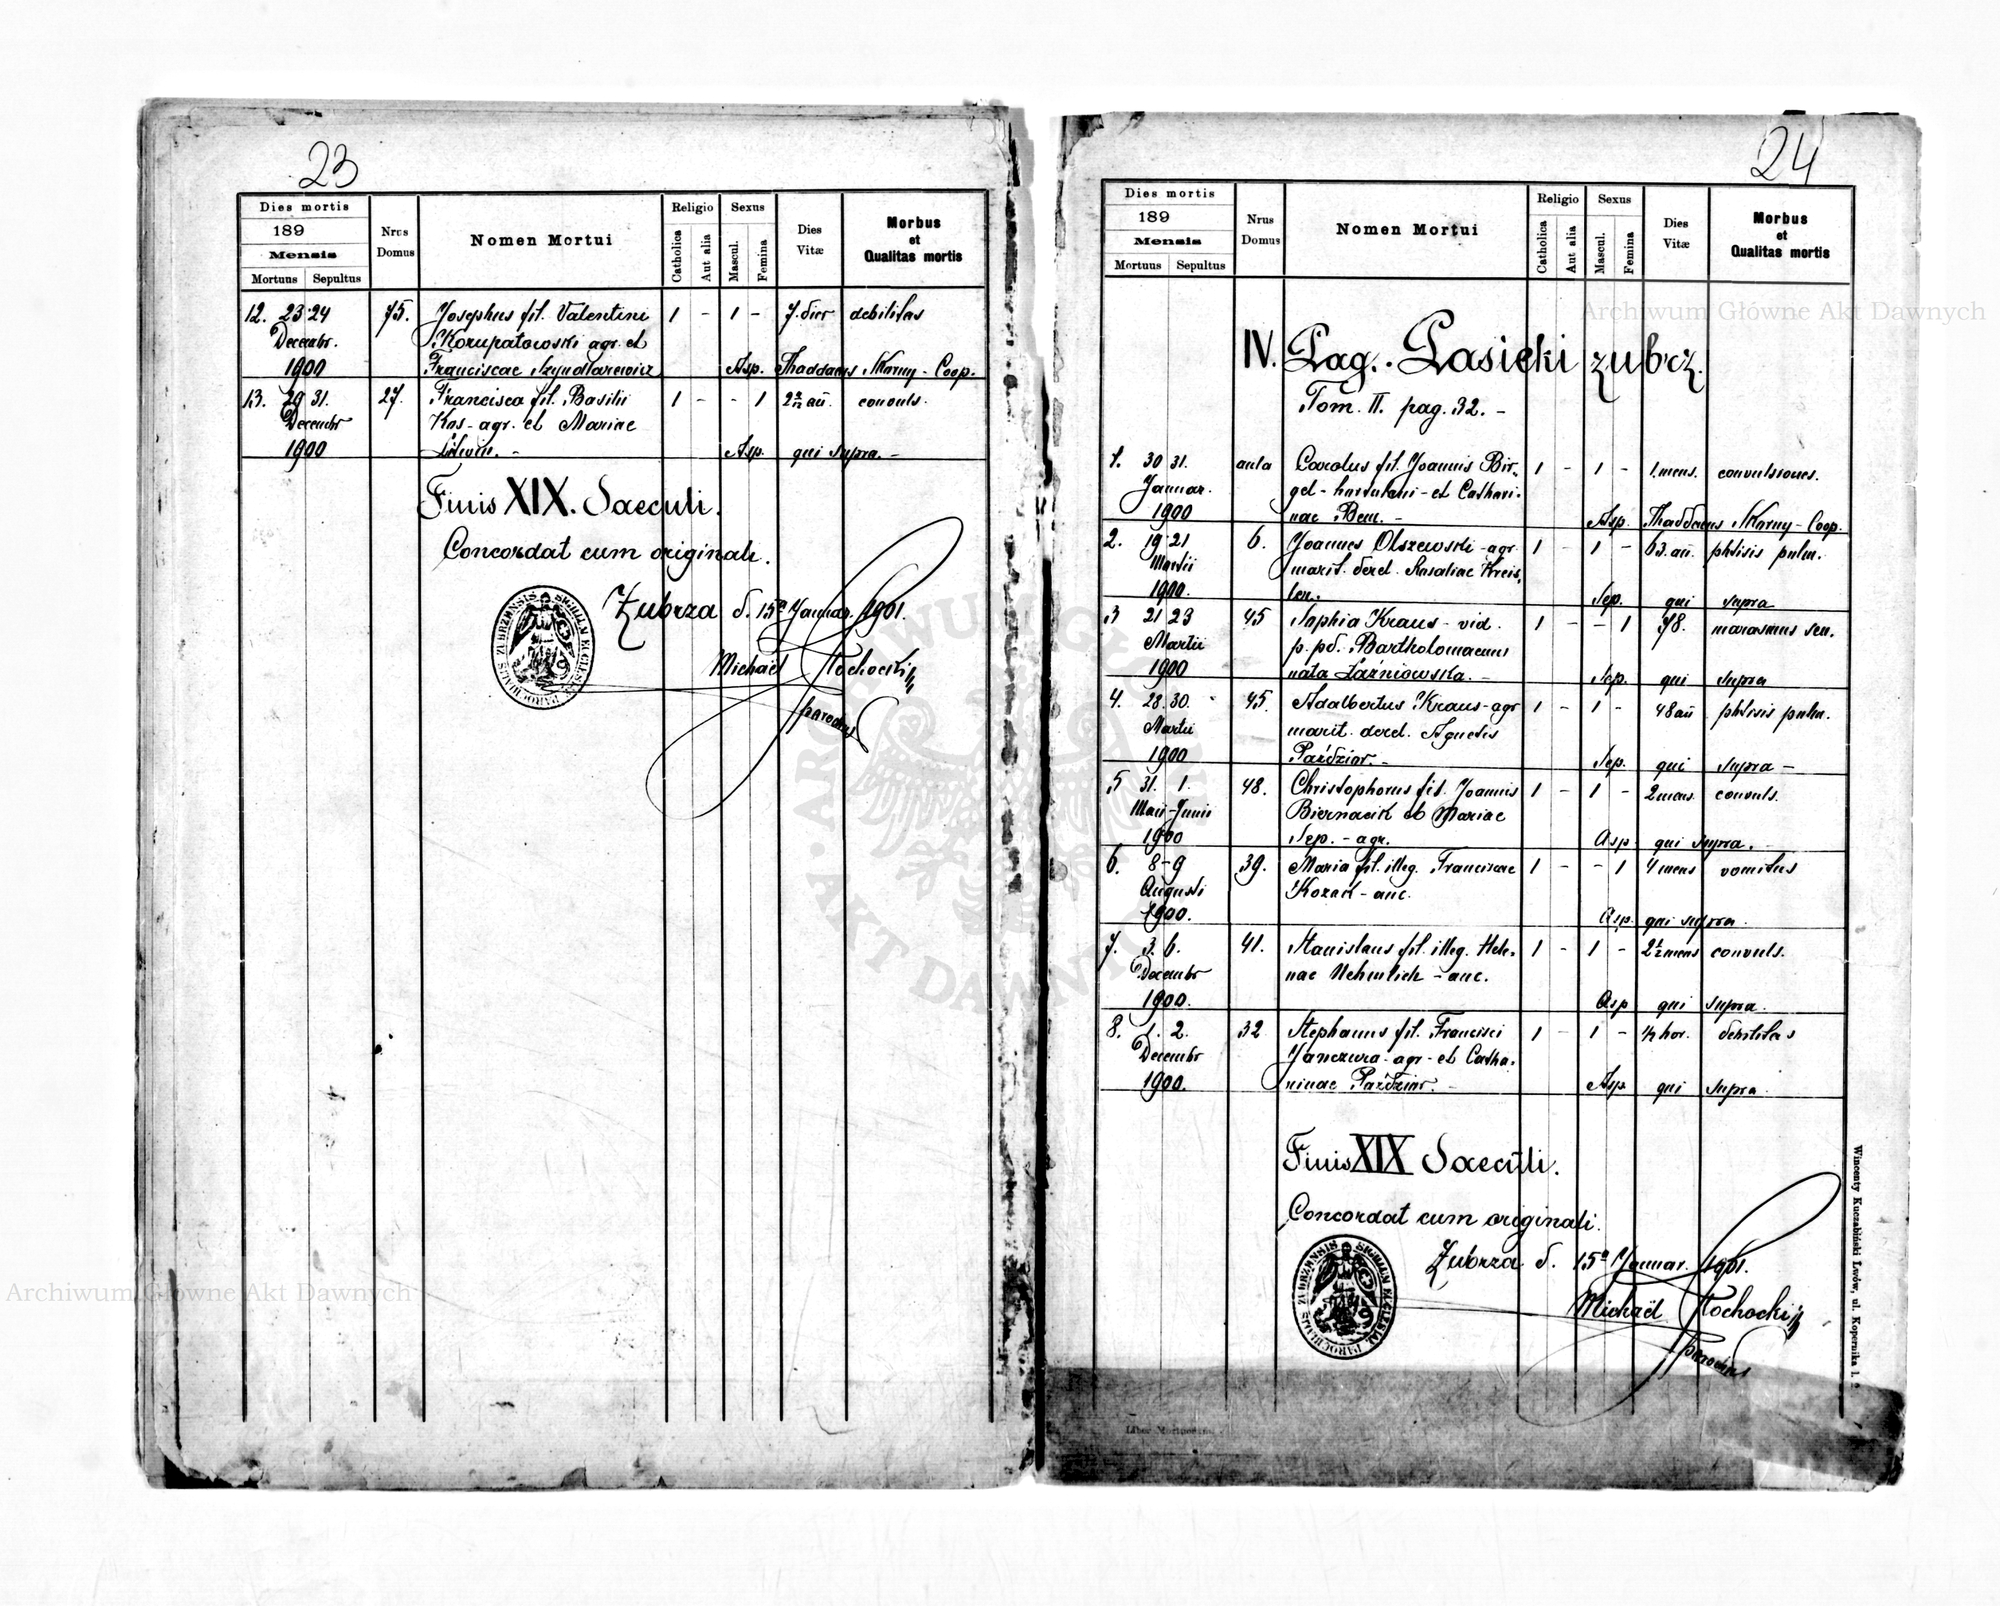 23
Dies mortis
189
Mensis
Mortuus Sepultus
Nrus Domus
Nomen Mortui
Religio
Catholica
Aut alia
Sexus
Mascul.
Femina
Dies Vitæ
Morbus et Qualitas mortis
12. 23 24 75. Josephus fil. Valentini 1 - 1 - 7. dier debilitas
Decembr. Korupatowski agr. et
1900 Franciscae Szyndlarewicz Asp. Thaddaeus Skarny - Coop.
13. 29 31. 27. Francisca fil. Basilii 1 - - 1 convuls.
Decembr Kos - agr. et Mariae
1900 Litwin. - Asp. qui supra. -
Finis XIX. Saeculi.
Concordat cum originali.
Zubrza d. 15a Januar. 1901.
Michaël Stochocki
parochus
SIGILLUM ECCLESIAE PAROCHIALIS ZUBRZENSIS
24
Dies mortis
189
Mensis
Mortuus Sepultus
Nrus Domus
Nomen Mortui
Religio
Catholica
Aut alia
Sexus
Mascul.
Femina
Dies Vitæ
Morbus et Qualitas mortis
Archiwum Główne Akt Dawnych
IV. Pag. Pasieki zubrz.
Tom. II. pag. 32. -
1. 30 31. aula Carolus fil. Joannis Bir- 1 - 1 - 1. mens. convulsiones.
Januar. gel - hortulani - et Cathari-
1900 nae Bem. - Asp. Thaddaeus Skarny - Coop.
2. 19 21 6. Joannes Olszewski - agr. 1 - 1 - 63. an. phtisis pulm.
Martii marit. derel. Rosaliae Kreis-
1900. ler. Sep. qui supra
3 21 23 45 Sophia Kraus - vid. 1 - - 1 78. marasmus sen.
Martii p. pd. Bartholomaeum
1900 nata Łaźniowska. - Sep. qui supra
4. 28. 30. 45. Adalbertus Kraus - agr 1 - 1 - 48 an phtisis pulm.
Martii marit. derel. Agnetis
1900 Paździor. - Sep. qui supra -
5 31. 1. 48. Christophorus fil. Joannis 1 - 1 - 2 mens. convuls.
Maii - Junii Biernacik et Mariae
1900 Sep. - agr. Asp qui supra.
6. 8 - 9 39. Maria fil. illeg. Franciscae 1 - - 1 4 mens vomitus
Augusti Kozak - anc.
1900. Asp. qui supra.
7. 3. 6. 41. Stanislaus fil. illeg. Hele- 1 - 1 - 2½ mens convuls.
Decembr nae Nehmlich - anc.
1900. Asp qui supra.
8. 1. 2. 32 Stephanus fil. Francisci 1 - 1 - ½ hor. debilitas
Decembr Janczura - agr - et Catha-
1900. rinae Paździor. - Asp qui supra
Finis XIX Saeculi.
Concordat cum originali.
Zubrza d. 15a Januar. 1901.
Michaël Stochocki
parochus
SIGILLUM ECCLESIAE PAROCHIALIS ZUBRZENSIS
Wincenty Kuczabiński Lwów, ul. Kopernika l.
Liber Mortuorum
Archiwum Główne Akt Dawnych
ARCHIWUM GŁÓWNE AKT DAWNYCH